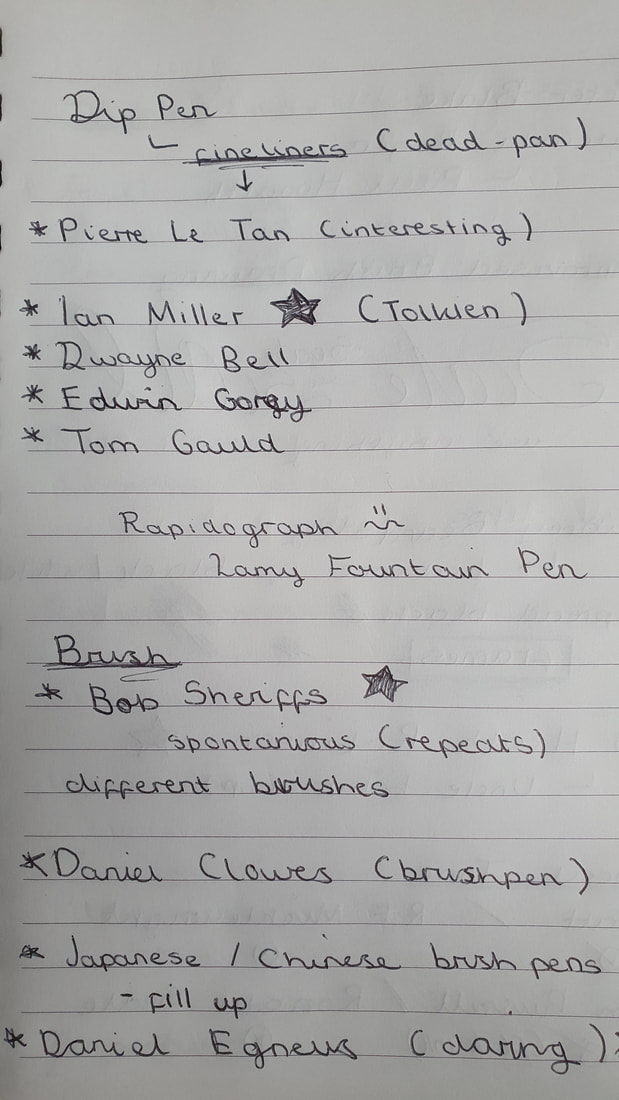 Dip Pen
fineliners (dead-pan)
* Pierre Le Tan (interesting)
* Ian Miller ★ (Tolkien)
* Dwayne Bell
* Edwin Gorey
* Tom Gauld
Rapidograph
Lamy Fountain Pen
Brush
* Bob Sheriffs ★
spontanuous (repeats)
different brushes
* Daniel Clowes (brushpen)
* Japanese / Chinese brush pens
- fill up
* Daniel Egneus (daring)